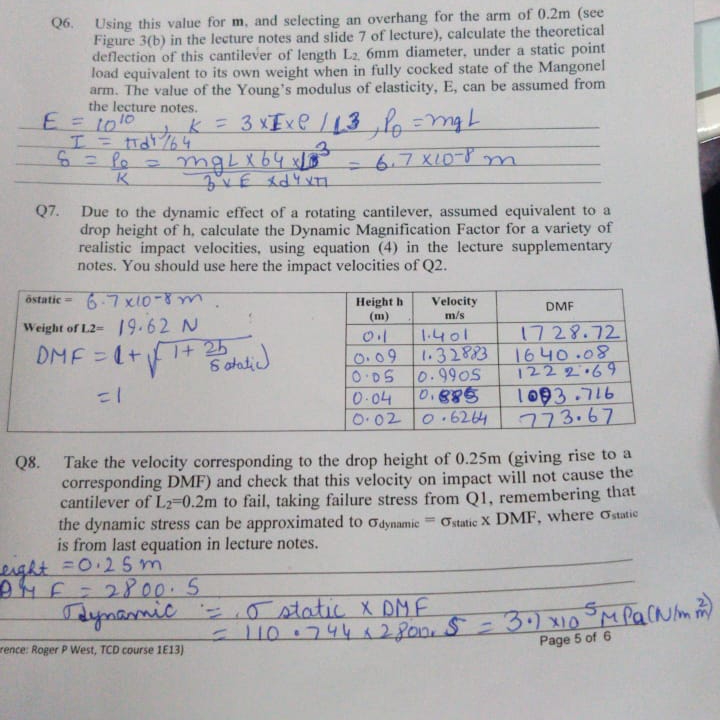 Q6. Using this value for m, and selecting an overhang for the arm of 0.2m (see
Figure 3(b) in the lecture notes and slide 7 of lecture), calculate the theoretical
deflection of this cantilever of length L2, 6mm diameter, under a static point
load equivalent to its own weight when in fully cocked state of the Mangonel
arm. The value of the Young's modulus of elasticity, E, can be assumed from
the lecture notes.
E = 10^10 , K = 3 x I x e / L3 , P0 = mgL
I = πd^4/64
δ = P0/K = mgL x 64 x L^3 / 3 x E x d^4 x π = 6.7 x 10^-8 m
Q7. Due to the dynamic effect of a rotating cantilever, assumed equivalent to a
drop height of h, calculate the Dynamic Magnification Factor for a variety of
realistic impact velocities, using equation (4) in the lecture supplementary
notes. You should use here the impact velocities of Q2.
δstatic = 6.7 x 10-8 m.
Weight of L2= 19.62 N
DMF = 1 + √(1 + 2h / δ static)
= 1
Height h (m) Velocity m/s DMF
0.1 1.401 1728.72
0.09 1.32883 1640.08
0.05 0.9905 1222.69
0.04 0.885 1093.716
0.02 0.6264 773.67
Q8. Take the velocity corresponding to the drop height of 0.25m (giving rise to a
corresponding DMF) and check that this velocity on impact will not cause the
cantilever of L2=0.2m to fail, taking failure stress from Q1, remembering that
the dynamic stress can be approximated to σdynamic = σstatic X DMF, where σstatic
is from last equation in lecture notes.
eight = 0.25m
DMF = 2800.5
σdynamic = σ static X DMF
= 110.744 x 2800.5 = 3.1 x10^5 MPa (N/mm^2)
Page 5 of 6
rence: Roger P West, TCD course 1E13)